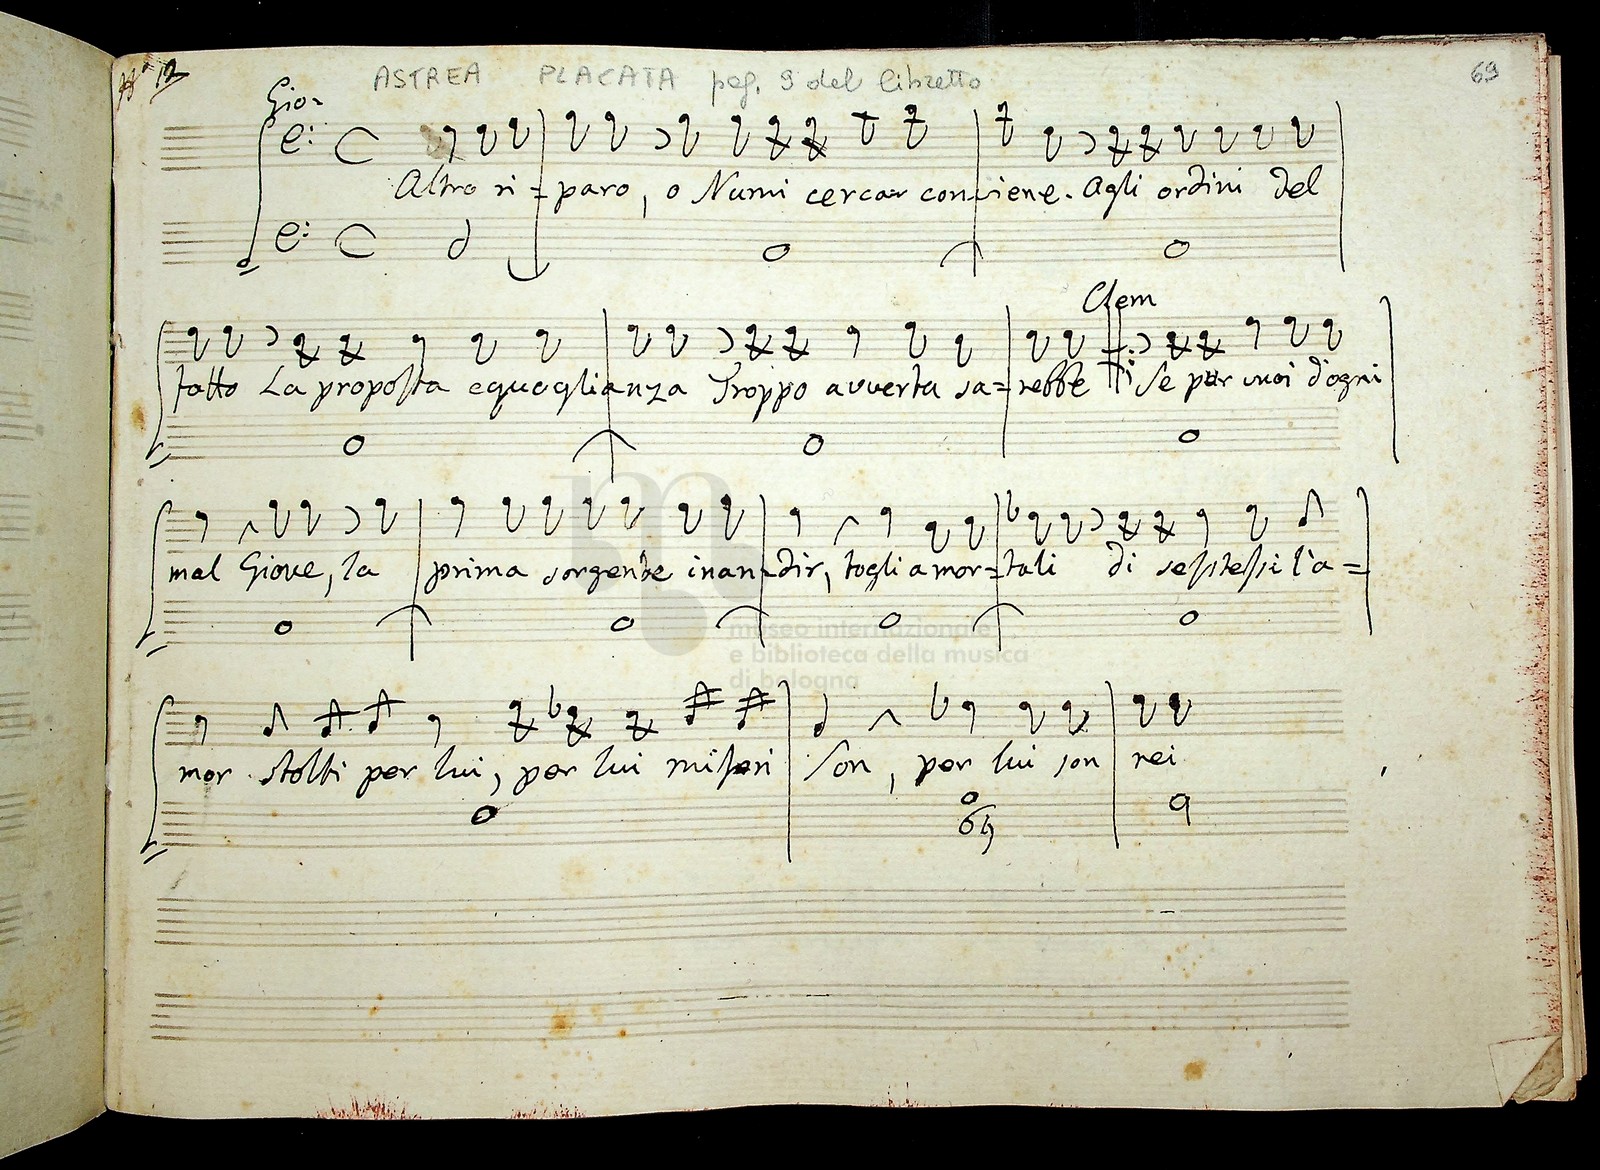 N° 12 ASTREA PLACATA pag. 9 del libretto 69
Gio:
Altro ri = paro, o Numi cercar conviene. Agli ordini del
Clem
fatto La proposta equaglianza Troppo avverta sa = rebbe Se pur vuoi d'ogni
mal Giove, la prima sorgente inan = dir, togli a mor = tali di sestessi l'a =
museo internazionale
e biblioteca della musica
di bologna
mor stolti per lui, per lui miseri son, per lui son rei